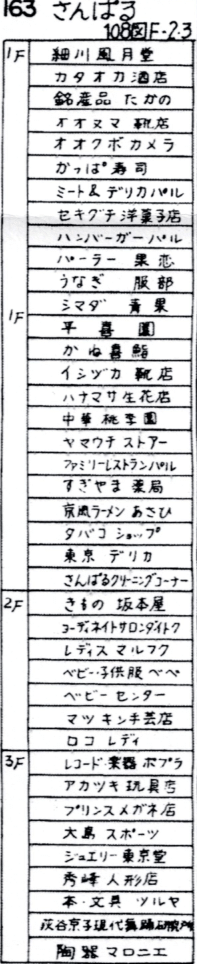 163 さんぱる
108図F-2.3
1F
細川風月堂
カタオカ酒店
銘産品 たかの
オオヌマ 靴店
オオクボカメラ
かっぱ寿司
ミート&デリカパル
セキグチ洋菓子店
ハンバーガーパル
パーラー 果恋
うなぎ 服部
シマダ 青果
1F
平喜園
かね喜鮨
イシヅカ 靴店
ハナマサ生花店
中華 桃李園
ヤマウチ ストアー
ファミリーレストランパル
すぎやま 薬局
京風ラーメン あさひ
タバコ ショップ
東京 デリカ
さんぱるクリーニングコーナー
2F
きもの 坂本屋
コーディネイトサロンダイトク
レディス マルフク
ベビー・子供服 べべ
ベビー センター
マツキン手芸店
ロコ レディ
3F
レコード・楽器 ポプラ
アカツキ 玩具店
プリンスメガネ店
大島 スポーツ
ジュエリー東京堂
秀峰人形店
本・文具 ツルヤ
荻谷京子現代舞踊研究所
陶器 マロニエ